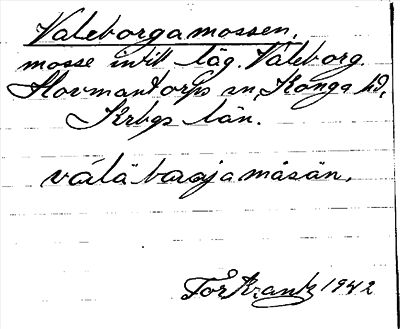 Valeborgamossen,
mosse intill läg. Valeborg.
Hovmantorps sn, Konga hd,
Krbgs län.
välä baraja måsän.
Tor Krantz 1942